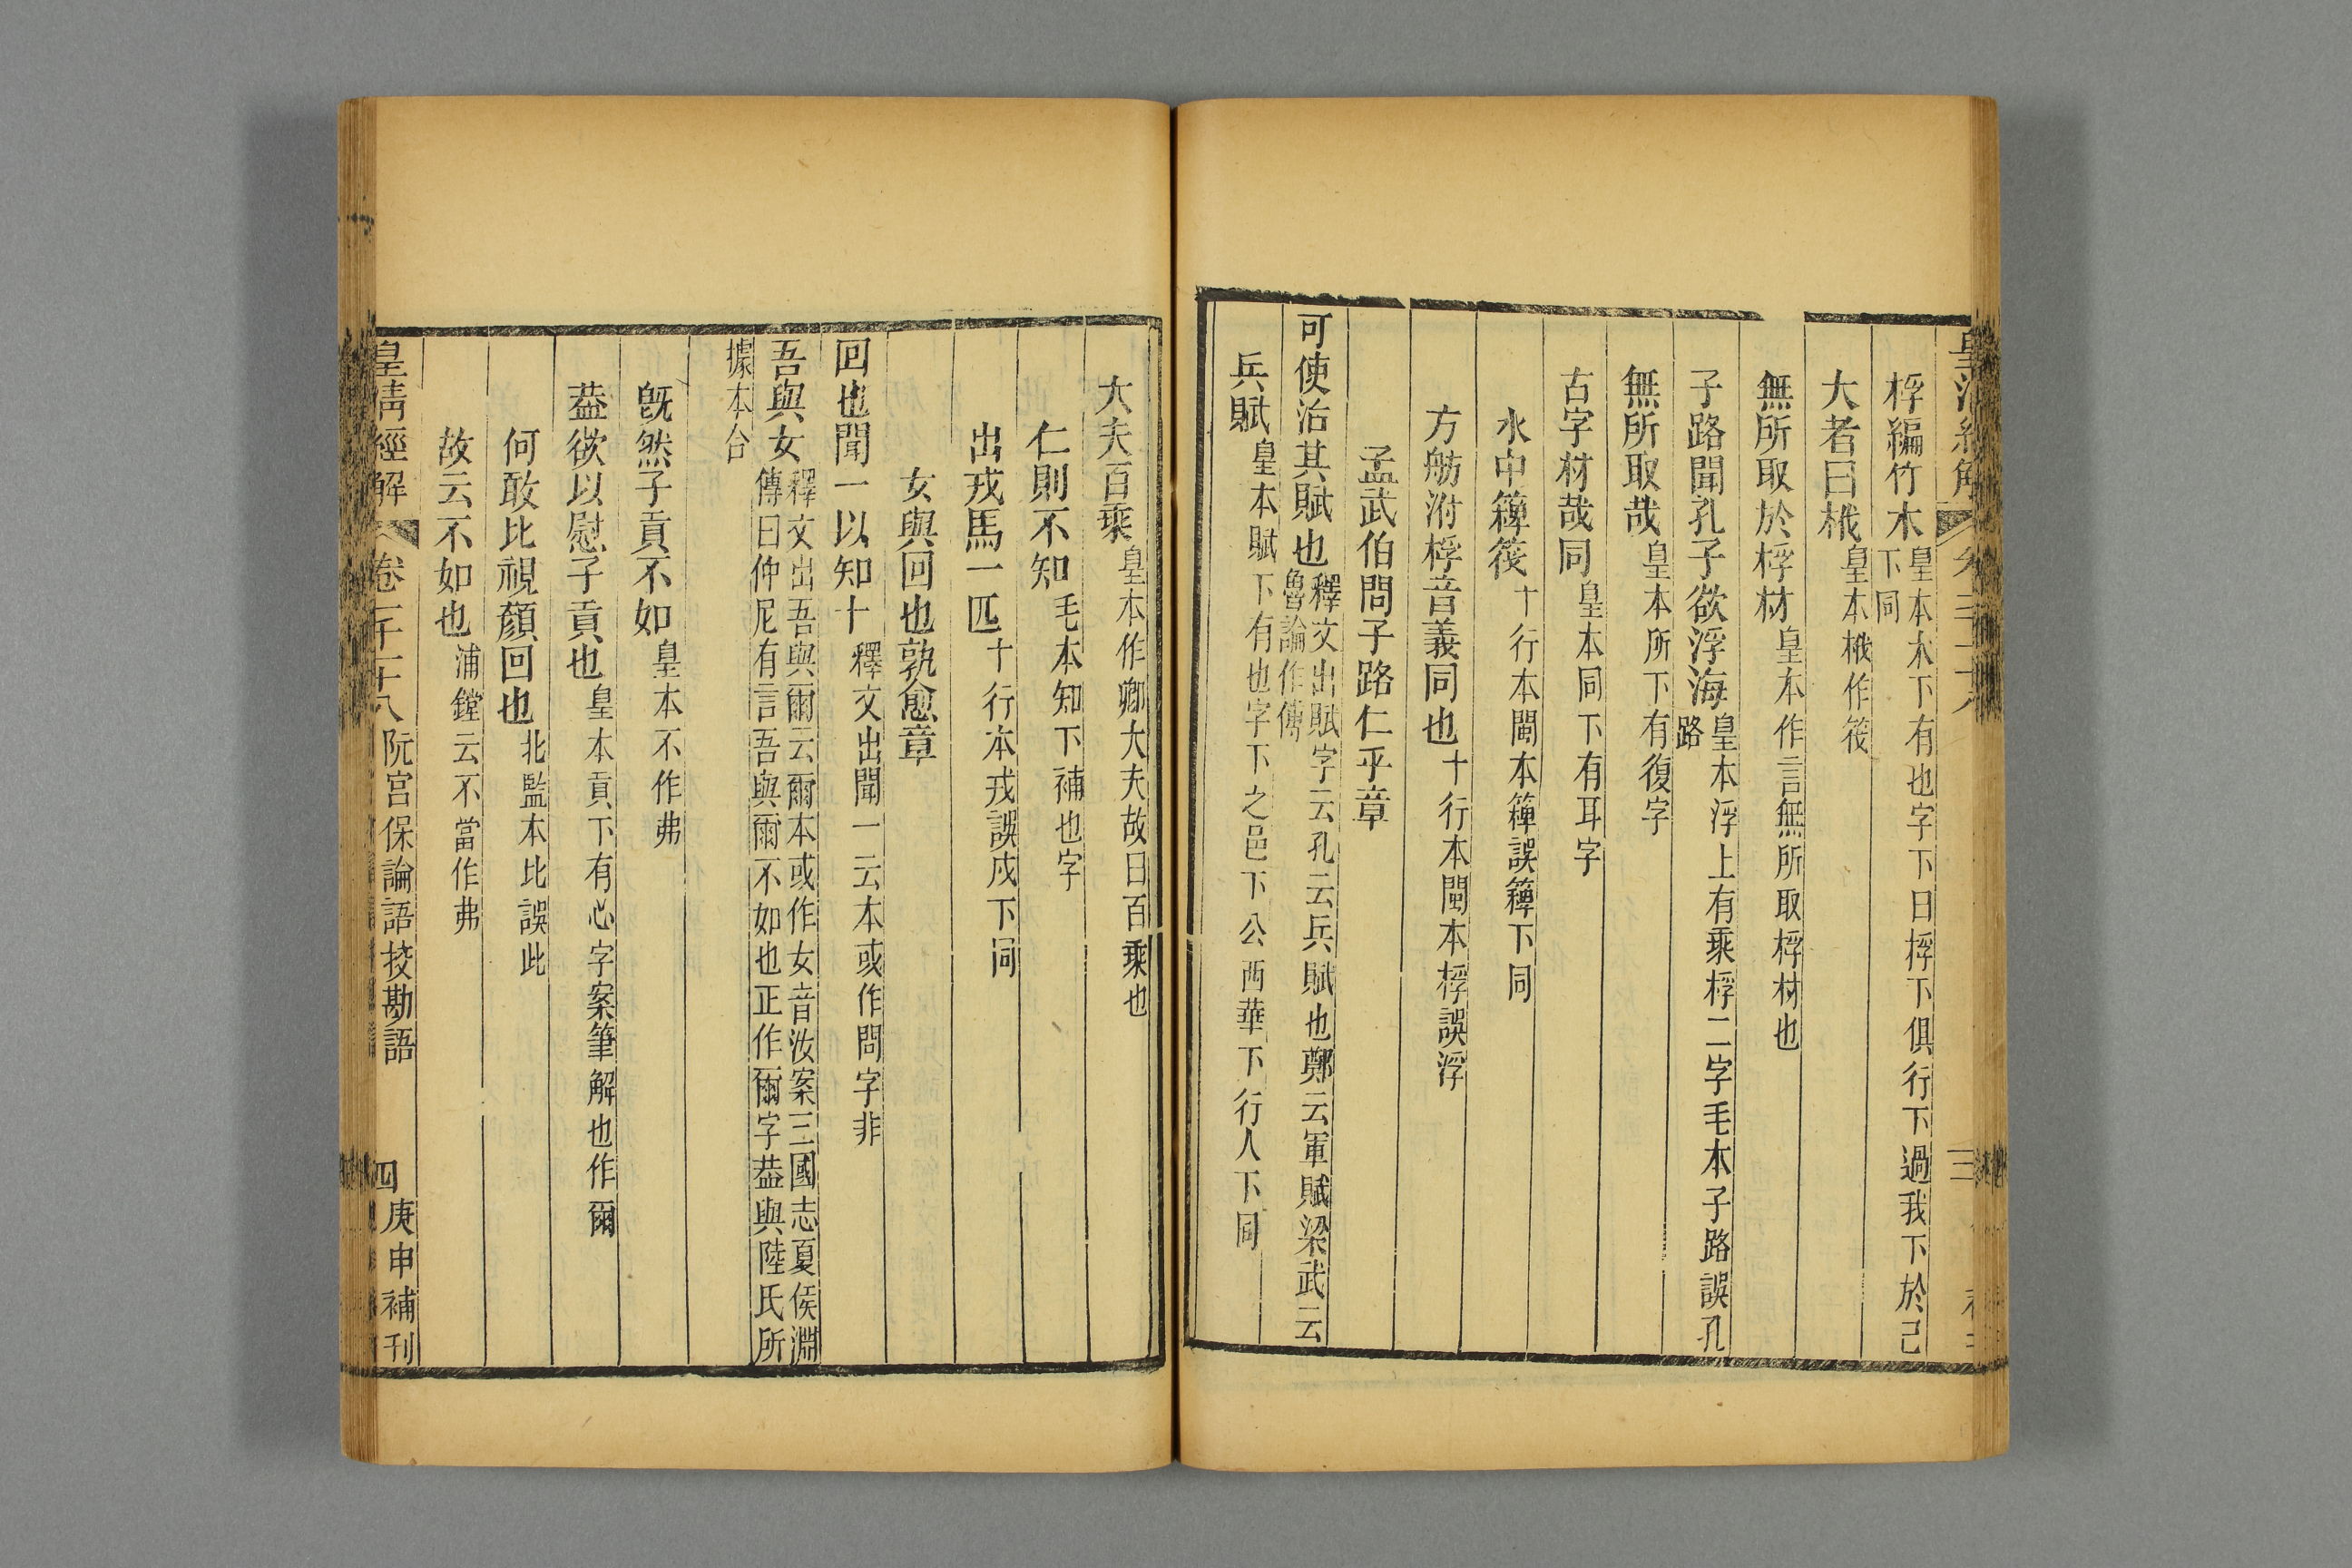 桴編竹木皇本木下有也字下曰桴下俱行下過我下於己下同
大者曰栰皇本栰作筏
無所取於桴材皇本作言無所取桴材也
子路聞孔子欲浮海皇本浮上有乘桴二字毛本子路誤孔路
無所取哉皇本所下有復字
古字材哉同皇本同下有耳字
水中箄筏十行本閩本箄誤簰下同
方舫泭桴音義同也十行本閩本桴誤浮
孟武伯問子路仁乎章
可使治其賦也釋文出賦字云孔云兵賦也鄭云軍賦梁武云魯論作傅
兵賦皇本賦下有也字下之邑下公西華下行人下同
大夫百乘皇本作卿大夫故曰百乘也
仁則不知毛本知下補也字
出戎馬一匹十行本戎誤戍下同
女與回也孰愈章
回也聞一以知十釋文出聞一云本或作問字非
吾與女釋文出吾與爾云爾本或作女音汝案三國志夏侯淵傳曰仲尼有言吾與爾不如也正作爾字葢與陸氏所
據本合
旣然子貢不如皇本不作弗
葢欲以慰子貢也皇本貢下有心字案筆解也作爾
何敢比視顏回也北監本比誤此
故云不如也浦鏜云不當作弗
皇清經解 卷一千十八 阮宮保論語挍勘語 四 庚申補刊